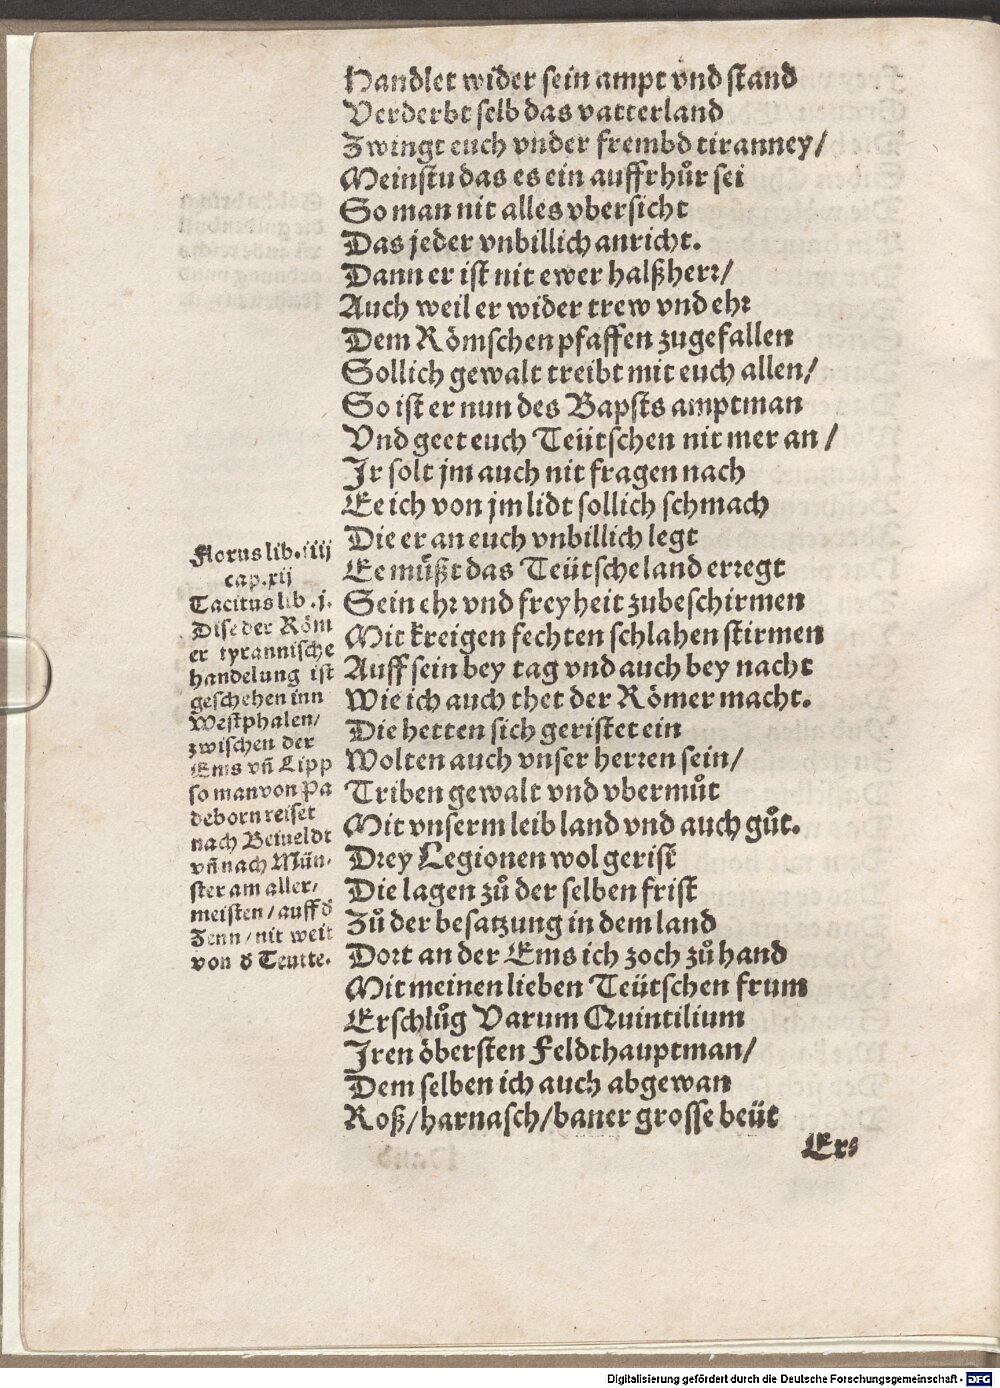 Handlet wider sein ampt vnd stand
Verderbt selb das vatterland
Zwingt euch vnder frembd tiranney/
Meinstu das es ein auffrhůr sei
So man nit alles vbersicht
Das jeder vnbillich anricht.
Dann er ist nit ewer halßherr/
Auch weil er wider trew vnd ehr
Dem Römschen pfaffen zugefallen
Sollich gewalt treibt mit euch allen/
So ist er nun des Bapsts amptman
Vnd geet euch Teütschen nit mer an/
Jr solt jm auch nit fragen nach
Ee ich von jm lidt sollich schmach
Die er an euch vnbillich legt
Ee müßt das Teütsche land erregt
Sein ehr vnd freyheit zubeschirmen
Mit kreigen fechten schlahen stirmen
Auff sein bey tag vnd auch bey nacht
Wie ich auch thet der Römer macht.
Die hetten sich geristet ein
Wolten auch vnser herren sein/
Triben gewalt vnd vbermůt
Mit vnserm leib land vnd auch gůt.
Drey Legionen wol gerist
Die lagen zů der selben frist
Zů der besatzung in dem land
Dort an der Ems ich zoch zů hand
Mit meinen lieben Teütschen frum
Erschlůg Varum Quintilium
Jren öbersten Feldthauptman/
Dem selben ich auch abgewan
Roß/harnasch/baner grosse beüt
Florus lib. iiij
cap. xij
Tacitus lib. j.
Dise der Röm
er tyrannische
handelung ist
geschehen inn
Westphalen/
zwischen der
Ems vñ Lipp
so man von Pa
deborn reiset
nach Beiueldt
vñ nach Mün-
ster am aller/
meisten/auff d
Senn/nit weit
von d Teutte.
Ers
Digitalisierung gefördert durch die Deutsche Forschungsgemeinschaft - DFG